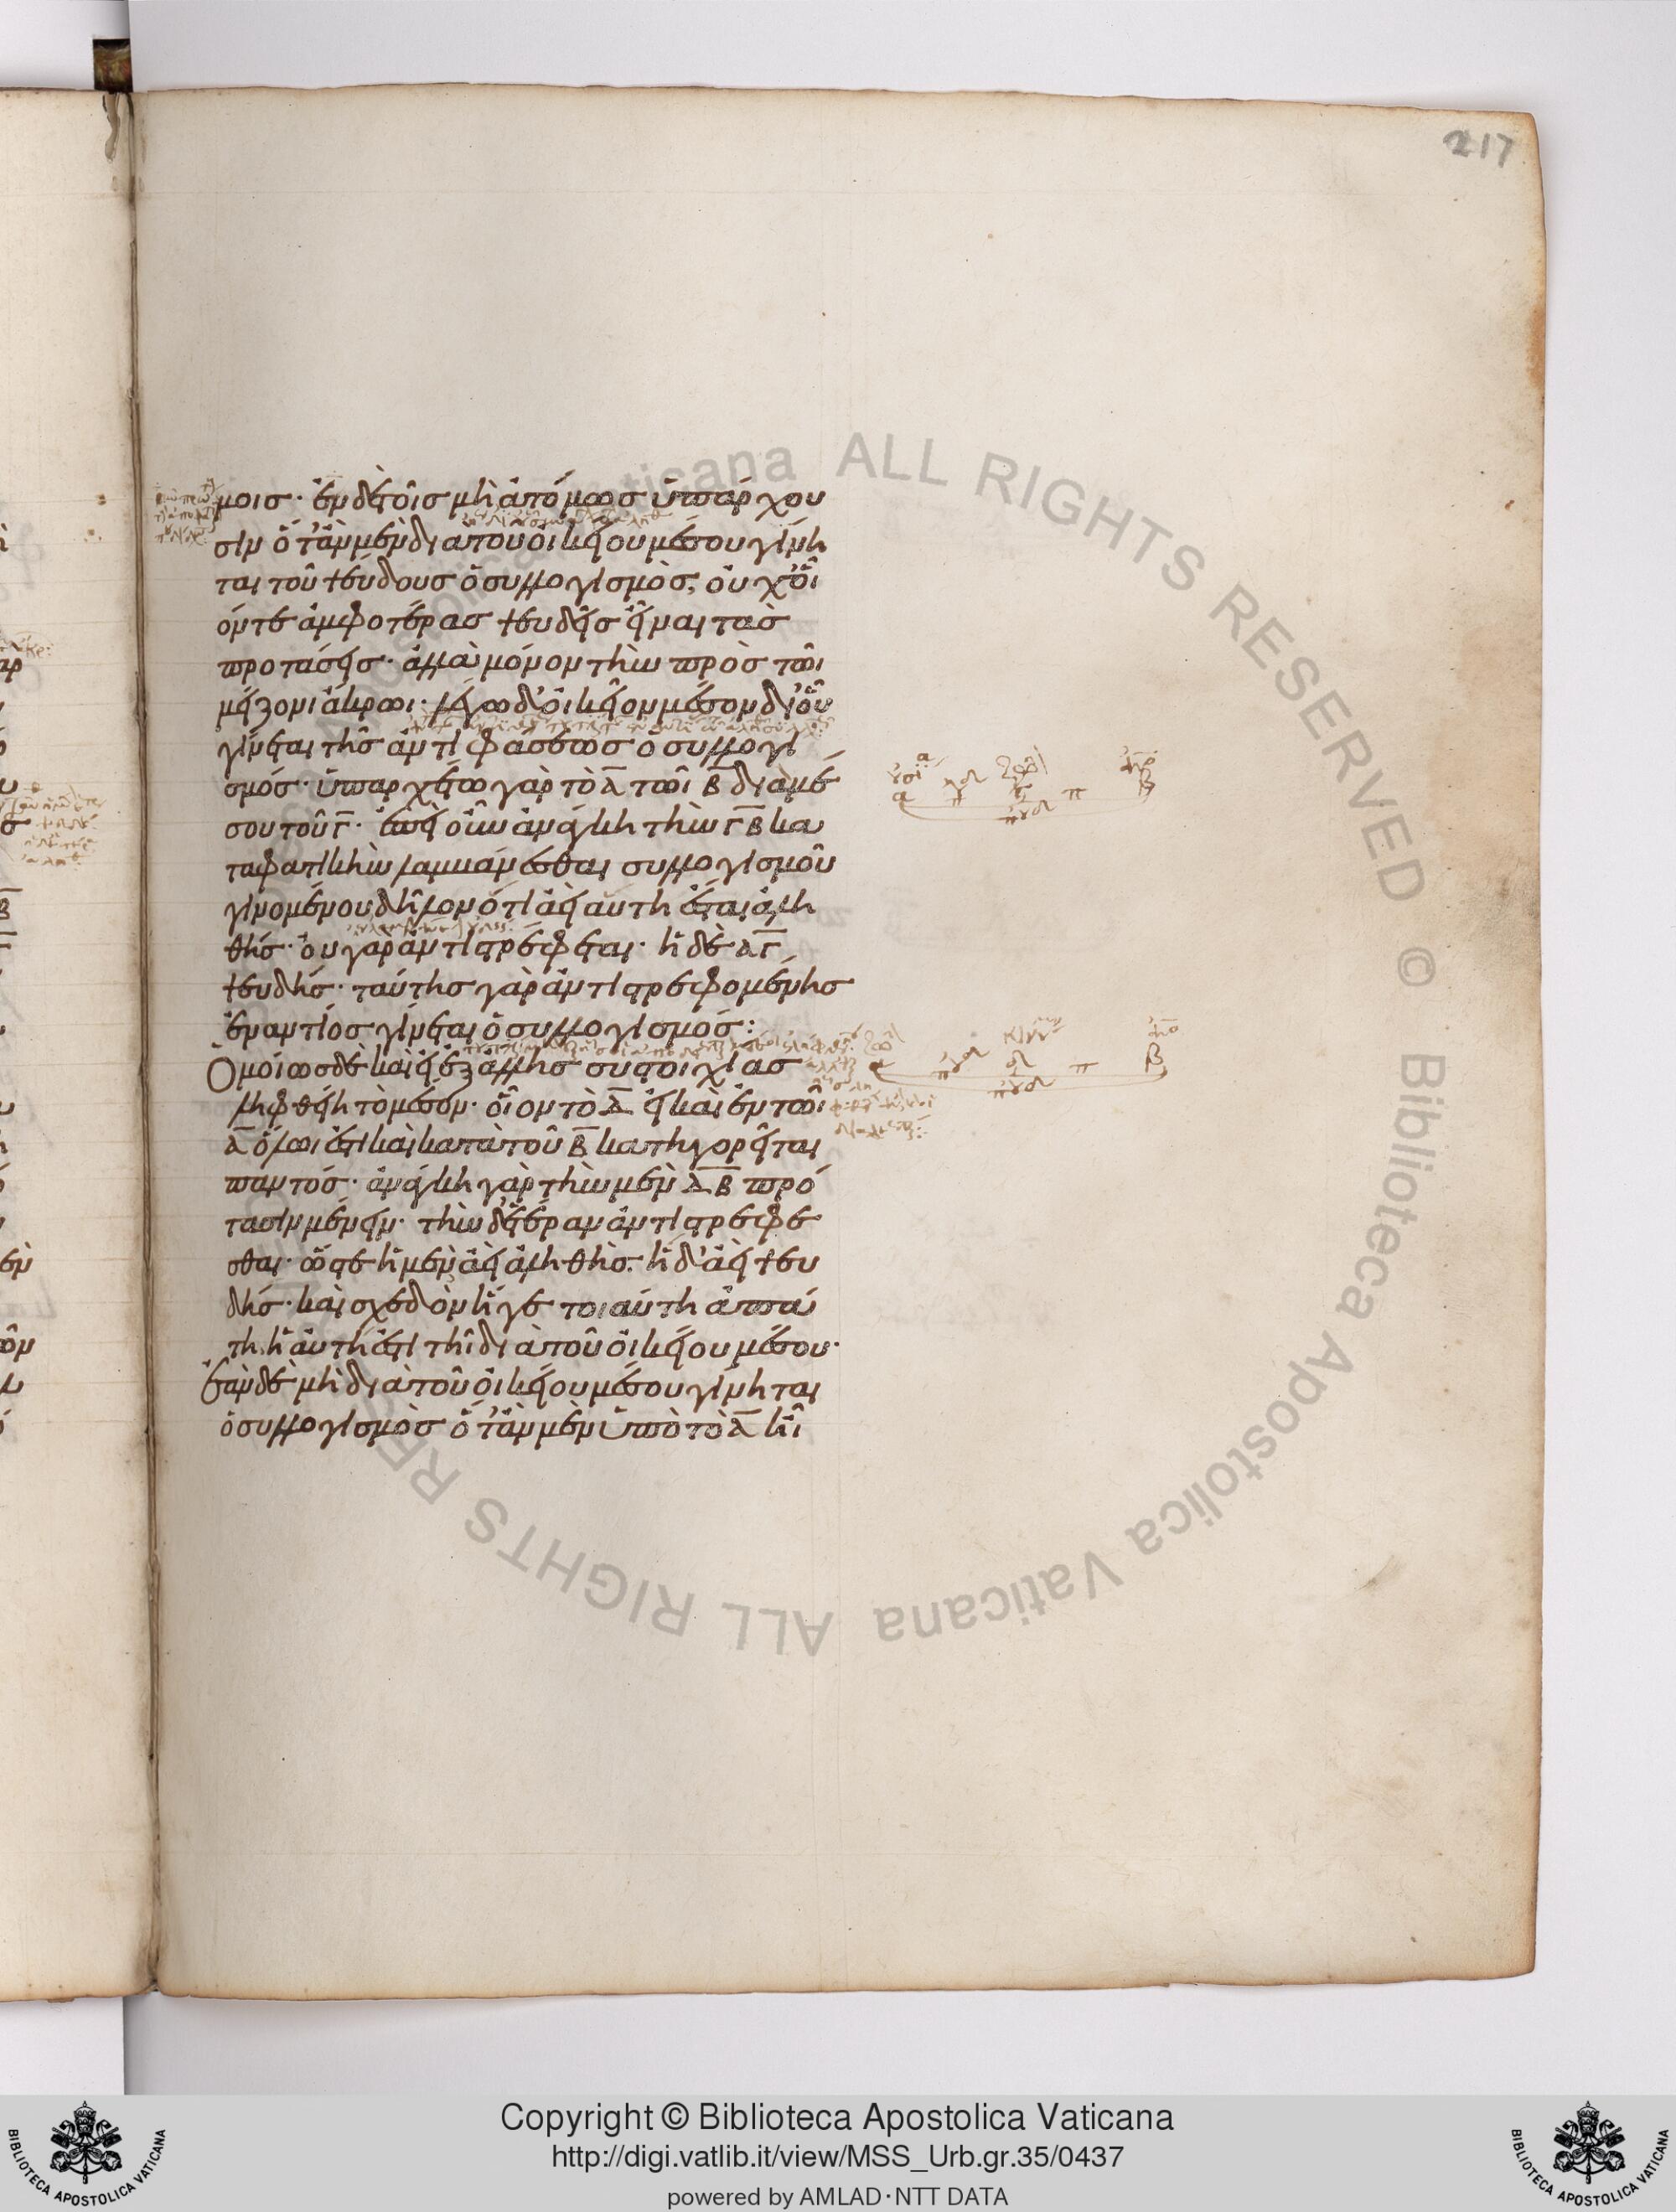 217
μοισ· ἐν δὲ τοῖσ μὴ ἀτόμωσ ὑπάρχου
σιν ὅτ' ἂν μὲν διὰ τοῦ οἰκείου μέσου γίνη
ται τοῦ ψεύδουσ ὁ συλλογισμὸσ, οὐχ' οἷ
όν τε ἀμφοτέρασ ψευδεῖσ εἶναι τὰσ
προτάσεισ· ἀλλὰ μόνον τὴν πρὸσ τῶι
μείζονι ἄκρωι· λέγω δ' οἰκεῖον μέσον δι' οὗ
γίνεται τῆσ ἀντιφάσεωσ ὁ συλλογι
σμόσ· ὑπαρχέτω γὰρ τὸ Α τῶι Β διὰ μέ
σου τοῦ Γ· ἐπεὶ οὖν ἀνάγκη τὴν ΓΒ κα
ταφατικὴν λαμβάνεσθαι συλλογισμοῦ
γινομένου δῆλον ὅτι ἀεὶ αὕτη ἔσται ἀλη
θήσ· οὐ γὰρ ἀντιστρέφεται· ἡ δὲ ΑΓ
ψευδήσ· ταύτησ γὰρ ἀντιστρεφομένησ
ἐναντίοσ γίνεται ὁ συλλογισμόσ:
Ὁμοίωσ δὲ καὶ εἰ ἐξ ἄλλησ συστοιχίασ
ληφθείη τὸ μέσον· οἷον τὸ Δ εἰ καὶ ἐν τῶι
Α ὅλωι ἐστὶ καὶ κατὰ τοῦ Β κατηγορεῖται
παντόσ· ἀνάγκη γὰρ τὴν μὲν ΔΒ πρό
τασιν μένειν· τὴν δ' ἑτέραν ἀντιστρέφε
σθαι· ὥστε ἡ μὲν ἀεὶ ἀληθὴσ. ἡ δ' ἀεὶ ψευ
δήσ· καὶ σχεδὸν ἥγε τοιαύτη ἀπά
τη ἡ αὐτή ἐστι τῆι διὰ τοῦ οἰκείου μέσου·
ἐὰν δὲ μὴ διὰ τοῦ οἰκείου μέσου γίνηται
ὁ συλλογισμὸσ ὅτ' ἂν μὲν ὑπὸ τὸ Α ἦι
Copyright © Biblioteca Apostolica Vaticana
http://digi.vatlib.it/view/MSS_Urb.gr.35/0437
powered by AMLAD·NTT DATA